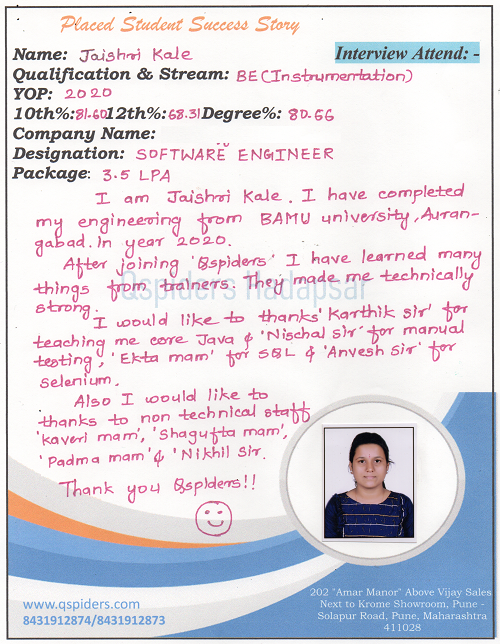 Placed Student Success Story
Name: Jaishri Kale
Interview Attend: -
Qualification & Stream: BE (Instrumentation)
YOP: 2020
10th%: 81.60 12th%: 68.31 Degree%: 80.66
Company Name:
Designation: SOFTWARE ENGINEER
Package: 3.5 LPA
I am Jaishri Kale. I have completed
my engineering from BAMU university, Auran-
gabad. In year 2020.
After joining 'Qspiders' I have learned many
things from trainers. They made me technically
strong.
Qspiders Hadapsar
I would like to thanks 'Karthik sir' for
teaching me core Java & 'Nischal sir' for manual
testing, 'Ekta mam' for SQL & 'Anvesh sir' for
selenium.
Also I would like to
thanks to non technical staff
'kaveri mam', 'Shagufta mam',
'Padma mam' & 'Nikhil sir.
Thank you Qspiders!!
www.qspiders.com
8431912874/8431912873
202 "Amar Manor" Above Vijay Sales
Next to Krome Showroom, Pune -
Solapur Road, Pune, Maharashtra
411028